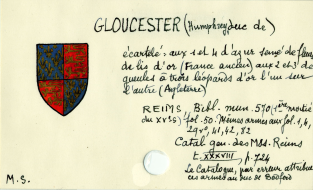 GLOUCESTER (Humphrey, duc de)
écartelé : aux 1 et 4 d'azur semé de fleurs
de lis d'or (France ancien) aux 2 et 3 de
gueules à trois léopards d'or l'un sur
l'autre (Angleterre)
REIMS, Bibl. mun. 570 (1ère moitié
du XVe s.) fol. 50. Mêmes armes aux fol. 1, 4,
29v°, 41, 42, 82
Catal. gen. des Mss. Reims
t. XXXVIII, p. 724
Le Catalogue, par erreur attribue
ces armes au duc de Bedford
M.S.